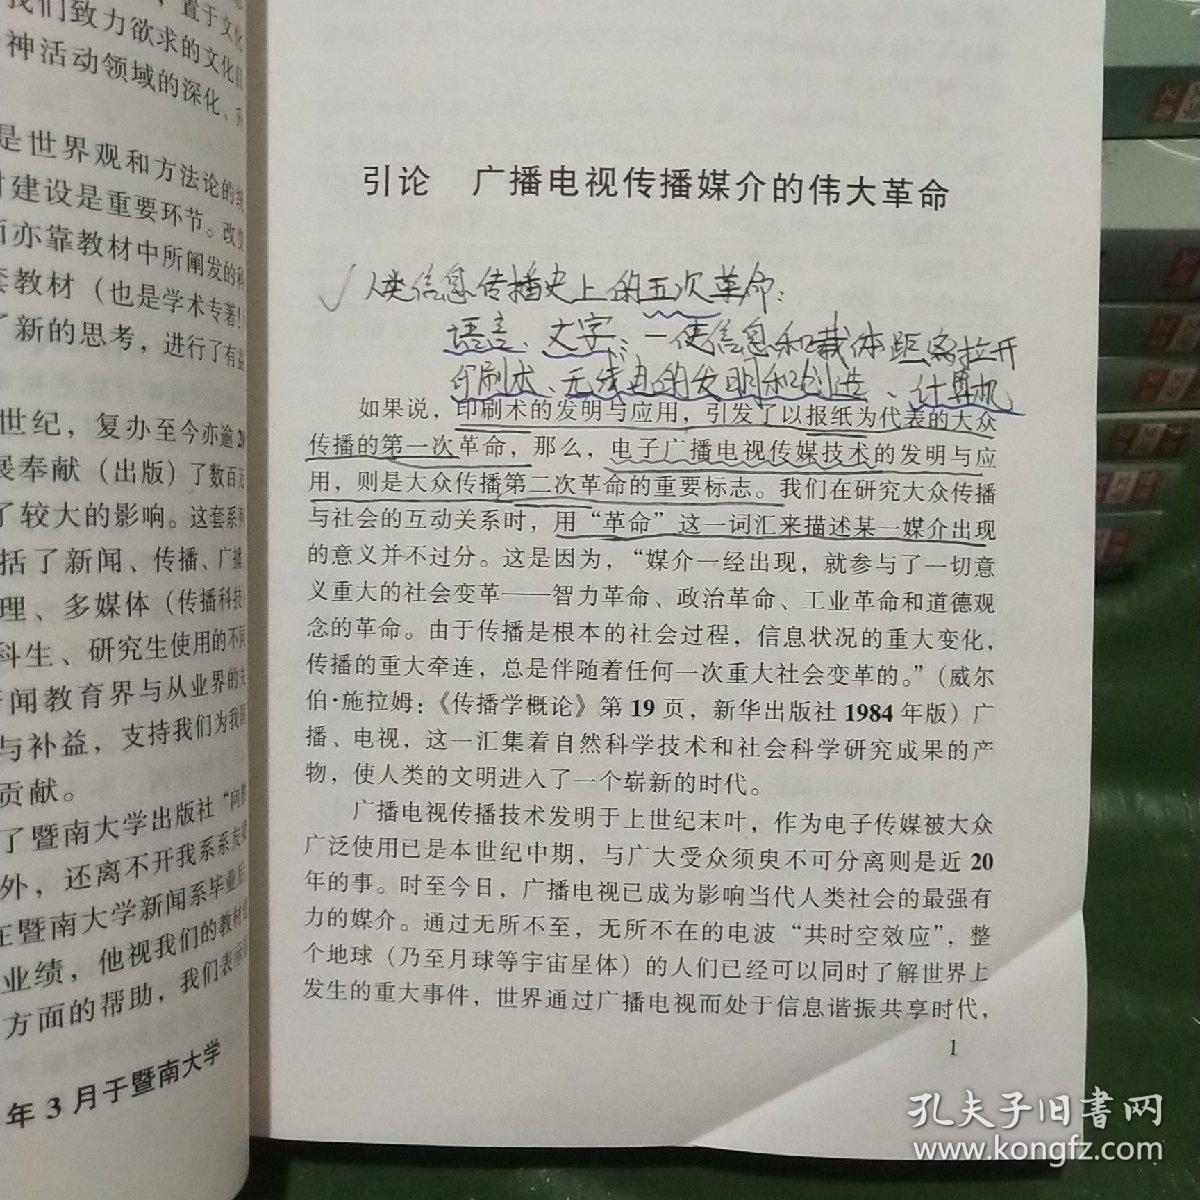 置于文化
我们致力欲求的文化
神活动领域的深化、
是世界观和方法论的
建设是重要环节。改变
而亦靠教材中所阐发的科
套教材（也是学术专著！
了新的思考，进行了有益
世纪，复办至今亦逾20
展奉献（出版）了数百
了较大的影响。这套系列
括了新闻、传播、广播
理、多媒体（传播科技
科生、研究生使用的不同
闻教育界与从业界的
与补益，支持我们为我国
贡献。
了暨南大学出版社“
外，还离不开我系系友
在暨南大学新闻系毕业后
业绩，他视我们的教材
方面的帮助，我们表示
年3月于暨南大学
引论 广播电视传播媒介的伟大革命
√人类信息传播史上的五次革命：
语言、文字：—使信息和载体距离拉开
印刷术、无线电的发明和创造、计算机
如果说，印刷术的发明与应用，引发了以报纸为代表的大众
传播的第一次革命，那么，电子广播电视传媒技术的发明与应
用，则是大众传播第二次革命的重要标志。我们在研究大众传播
与社会的互动关系时，用“革命”这一词汇来描述某一媒介出现
的意义并不过分。这是因为，“媒介一经出现，就参与了一切意
义重大的社会变革——智力革命、政治革命、工业革命和道德观
念的革命。由于传播是根本的社会过程，信息状况的重大变化，
传播的重大牵连，总是伴随着任何一次重大社会变革的。”（威尔
伯·施拉姆：《传播学概论》第19页，新华出版社1984年版）广
播、电视，这一汇集着自然科学技术和社会科学研究成果的产
物，使人类的文明进入了一个崭新的时代。
广播电视传播技术发明于上世纪末叶，作为电子传媒被大众
广泛使用已是本世纪中期，与广大受众须臾不可分离则是近20
年的事。时至今日，广播电视已成为影响当代人类社会的最强有
力的媒介。通过无所不至，无所不在的电波“共时空效应”，整
个地球（乃至月球等宇宙星体）的人们已经可以同时了解世界上
发生的重大事件，世界通过广播电视而处于信息谐振共享时代，
1
孔夫子旧书网
www.kongfz.com